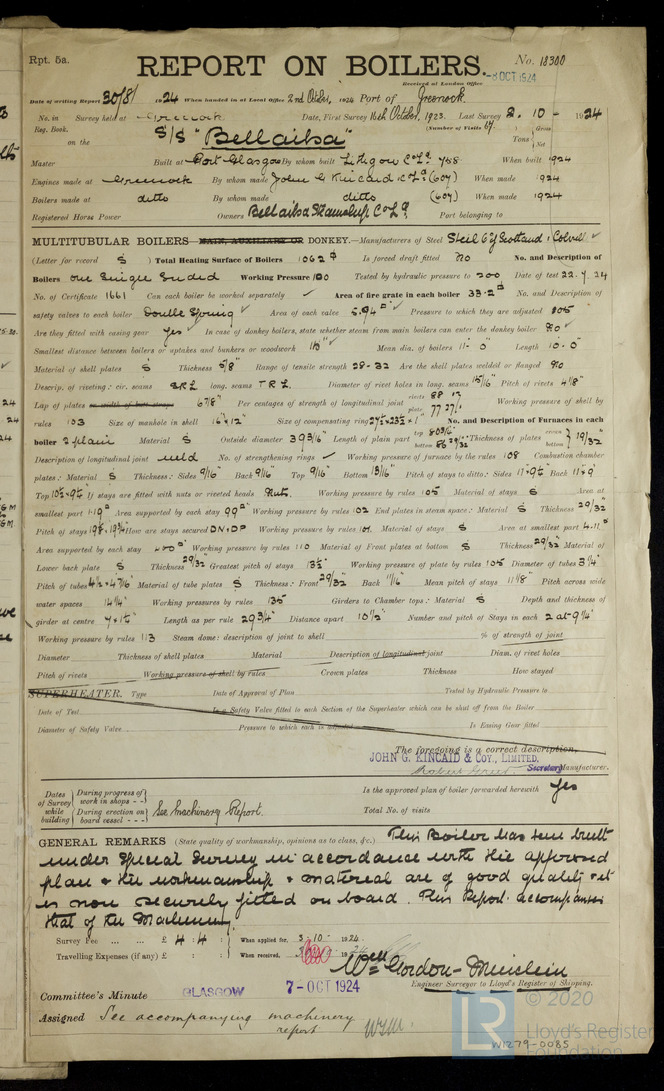 Rpt. 5a.
REPORT ON BOILERS.
No. 18300
Received at London Office
-8 OCT 1924
Date of writing Report 30/8/ 1924 When handed in at Local Office 2nd October, 1924 Port of Greenock
No. in Survey held at Greenock Date, First Survey 16th October, 1923. Last Survey 2. 10 - 1924
Reg. Book. (Number of Visits 67)
on the S/S "Bellailsa" Tons Gross Net
Master Built at Port Glasgow By whom built Lithgow Co Ld 758 When built 1924
Engines made at Greenock By whom made John G Kincaid & Co Ld (607) When made 1924
Boilers made at ditto By whom made ditto (607) When made 1924
Registered Horse Power Owners Bellailsa Steamship Co Ld Port belonging to
MULTITUBULAR BOILERS MAIN, AUXILIARY OR DONKEY.—Manufacturers of Steel Steel Co of Scotland, Colvill
(Letter for record S) Total Heating Surface of Boilers 1062 Is forced draft fitted No No. and Description of
Boilers one Single Ended Working Pressure 100 Tested by hydraulic pressure to 200 Date of test 22.7.24
No. of Certificate 1661 Can each boiler be worked separately Area of fire grate in each boiler 33.2 No. and Description of
safety valves to each boiler Double Spring Area of each valve 5.94 Pressure to which they are adjusted 105
Are they fitted with easing gear Yes In case of donkey boilers, state whether steam from main boilers can enter the donkey boiler No
Smallest distance between boilers or uptakes and bunkers or woodwork 18" Mean dia. of boilers 11'- 0" Length 10'-0"
Material of shell plates S Thickness 5/8" Range of tensile strength 28-32 Are the shell plates welded or flanged No
Descrip. of riveting: cir. seams S.R.L. long. seams T.R.L. Diameter of rivet holes in long. seams 15/16" Pitch of rivets 4 1/8"
Lap of plates or width of butt straps 6 7/8" Per centages of strength of longitudinal joint rivets 88 plate 77 Working pressure of shell by
rules 103 Size of manhole in shell 16"x12" Size of compensating ring No. and Description of Furnaces in each
boiler 2 plain Material S Outside diameter 39 3/16" Length of plain part top bottom Thickness of plates crown bottom 19/32"
Description of longitudinal joint weld No. of strengthening rings Working pressure of furnace by the rules 108 Combustion chamber
plates: Material S Thickness: Sides 9/16" Back 9/16" Top 9/16" Bottom 13/16" Pitch of stays to ditto: Sides 11"x9 1/2" Back 11"x9"
Top 10 1/2"x9 1/2" If stays are fitted with nuts or riveted heads Nuts. Working pressure by rules 105 Material of stays S Area at
smallest part Area supported by each stay 99 Working pressure by rules 102 End plates in steam space: Material S Thickness 29/32"
Pitch of stays How are stays secured DN+DP Working pressure by rules 101 Material of stays S Area at smallest part 4.11
Area supported by each stay 400 Working pressure by rules 110 Material of Front plates at bottom S Thickness 29/32" Material of
Lower back plate S Thickness 29/32" Greatest pitch of stays 13 1/2" Working pressure of plate by rules 105 Diameter of tubes 3 1/4"
Pitch of tubes 4 1/2 x 4 7/16" Material of tube plates S Thickness: Front 29/32" Back 11/16" Mean pitch of stays 11 1/8" Pitch across wide
water spaces 14 1/4" Working pressures by rules 135 Girders to Chamber tops: Material S Depth and thickness of
girder at centre 7x1 1/2" Length as per rule 29 3/4" Distance apart 10 1/2" Number and pitch of Stays in each 2 at 9 1/4"
Working pressure by rules 113 Steam dome: description of joint to shell % of strength of joint
Diameter Thickness of shell plates Material Description of longitudinal joint Diam. of rivet holes
Pitch of rivets Working pressure of shell by rules Crown plates Thickness How stayed
SUPERHEATER. Type Date of Approval of Plan Tested by Hydraulic Pressure to
Date of Test Is a Safety Valve fitted to each Section of the Superheater which can be shut off from the Boiler
Diameter of Safety Valve Pressure to which each is adjusted Is Easing Gear fitted
The foregoing is a correct description,
JOHN G. KINCAID & COY., LIMITED.
Secretary Manufacturer.
Dates of Survey while building During progress of work in shops - - During erection on board vessel - - - See Machinery Report. Is the approved plan of boiler forwarded herewith Yes
Total No. of visits
GENERAL REMARKS (State quality of workmanship, opinions as to class, &c.) This Boiler has been built
under Special Survey in accordance with the approved
plan & the workmanship & material are of good quality & it
is now securely fitted on board. This Report accompanies
that of the Machinery.
Survey Fee ... ... £ 4 : 4 : When applied for, 3 . 10 . 1924.
Travelling Expenses (if any) £ : : When received, 19
Wm Gordon-
Engineer Surveyor to Lloyd's Register of Shipping.
Committee's Minute GLASGOW 7-OCT 1924
Assigned See accompanying machinery
report
© 2020
LR
Lloyd's Register
Foundation
W1279-0085